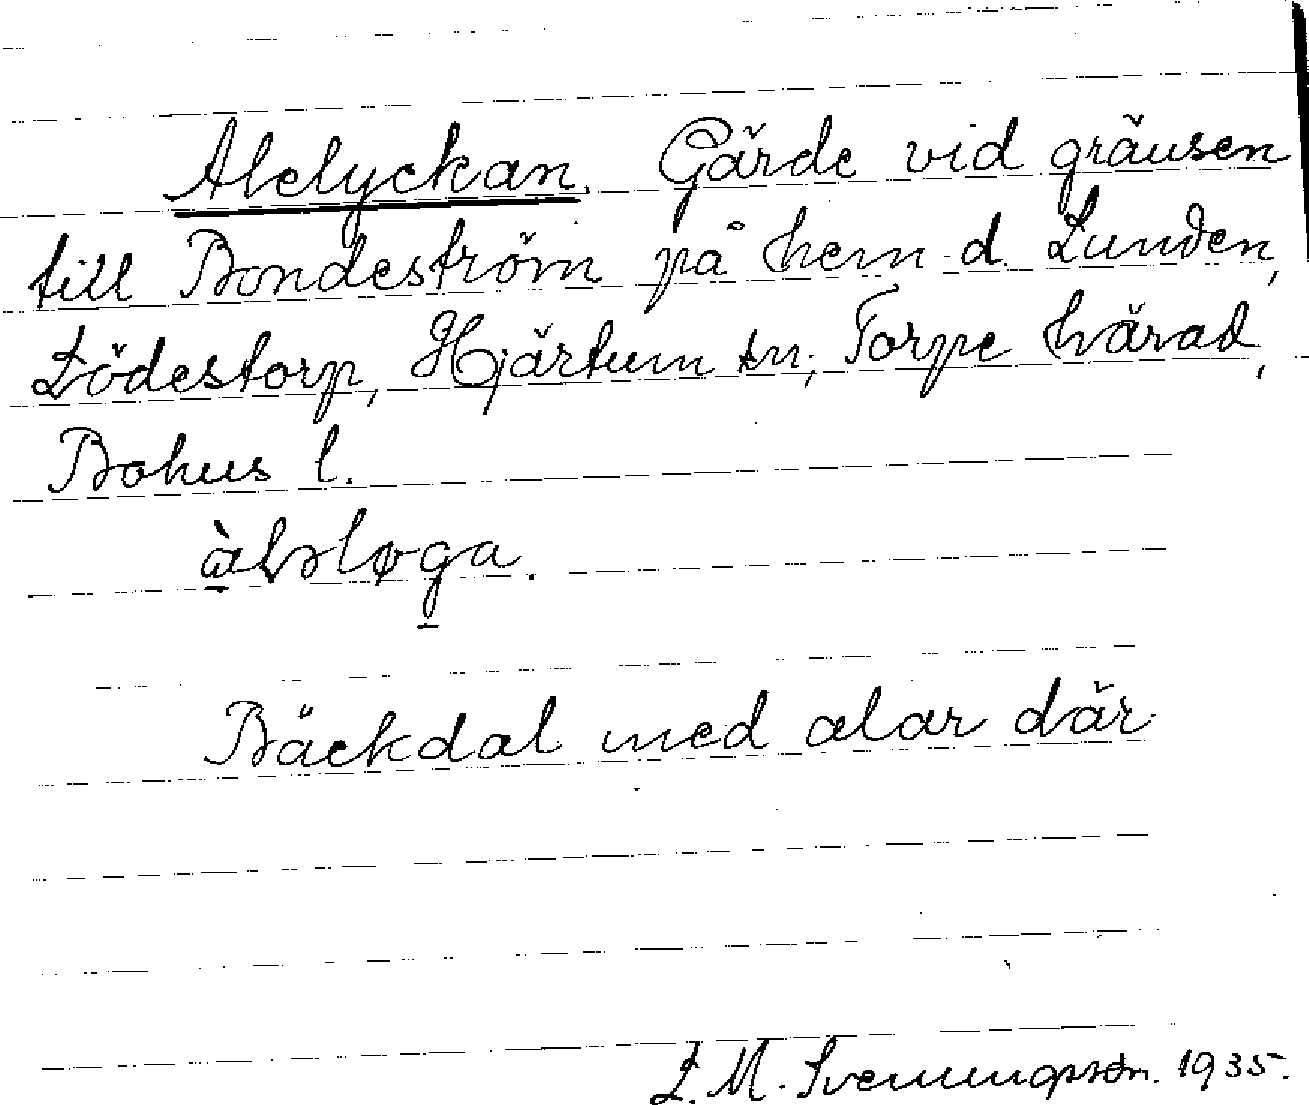 Alelyckan. Gärde vid gränsen
till Bondeström på hem-d. Lunden,
Lödestorp, Hjärtum sn, Torpe härad,
Bohus l.
Bäckdal med alar där
L. M. Svenungsson. 1935.